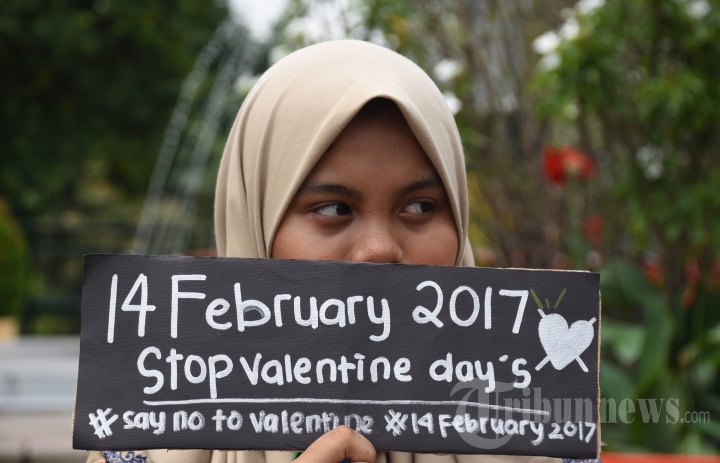 14 February 2017
Stop Valentine day's
#say no to Valentine #14 February 2017
Tribunnews.com